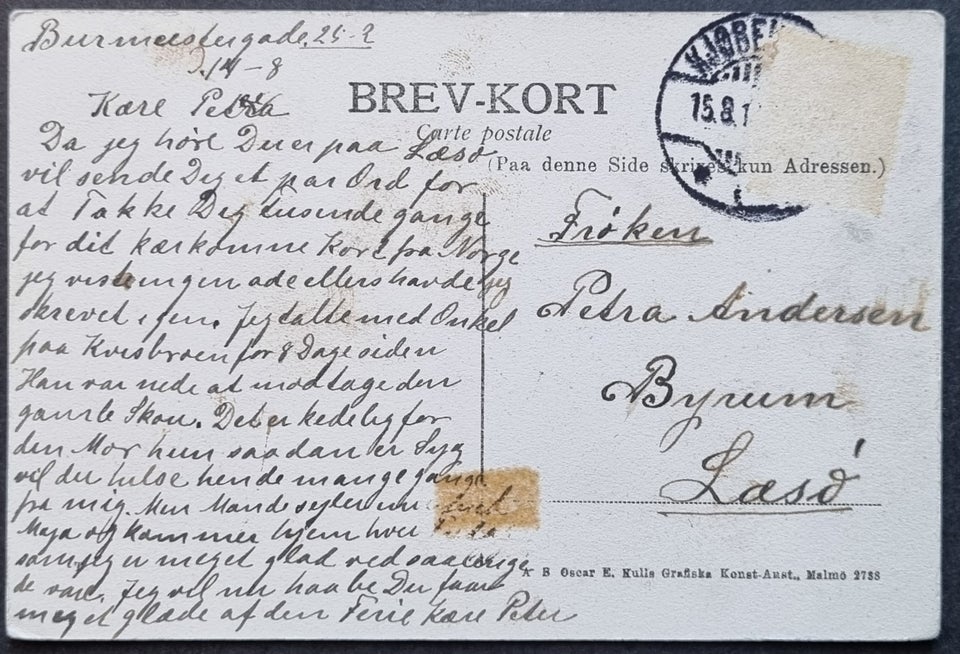 Burmeistergade. 25-2
D. 14-8
Kære Petra
Da jeg hört Du er paa Læsø
vil sende Dig et par Ord for
at Takke Dig tusende gange
for dit kærkomne Kort fra Norge
jeg vist ingen ade ellers havde jeg
skrevet igen. Jeg talte med Onkel
paa for 8 Dage siden
Han var nede at modtage den
gamle Skou. Det er kedelig for
den Mor hun saadan er Syg
vil du hilse hende mange gange
fra mig. Min Mand sejler nu med
Maja og kommer hjem hver
som jeg er meget glad ved saa længe
de var. Jeg vil nu haabe Du faar
meget glæde af din Ferie kære Peter
BREV-KORT
Carte postale
(Paa denne Side skrives kun Adressen.)
KJØBEN
15.8.1
Frøken
Petra Andersen
Byrum
Læsø
A B Oscar E. Kulls Grafiska Konst-Anst., Malmö 2738